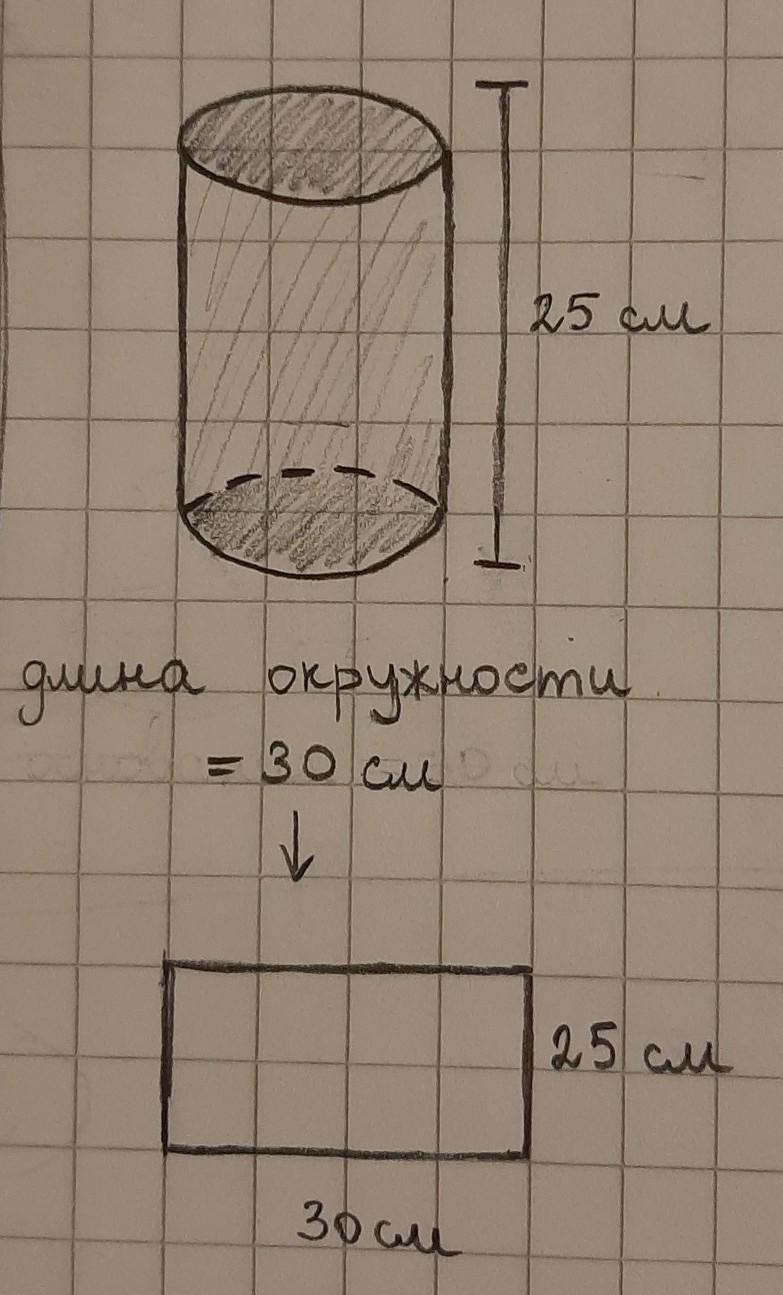 25 см
длина окружности
= 30 см
25 см
30 см